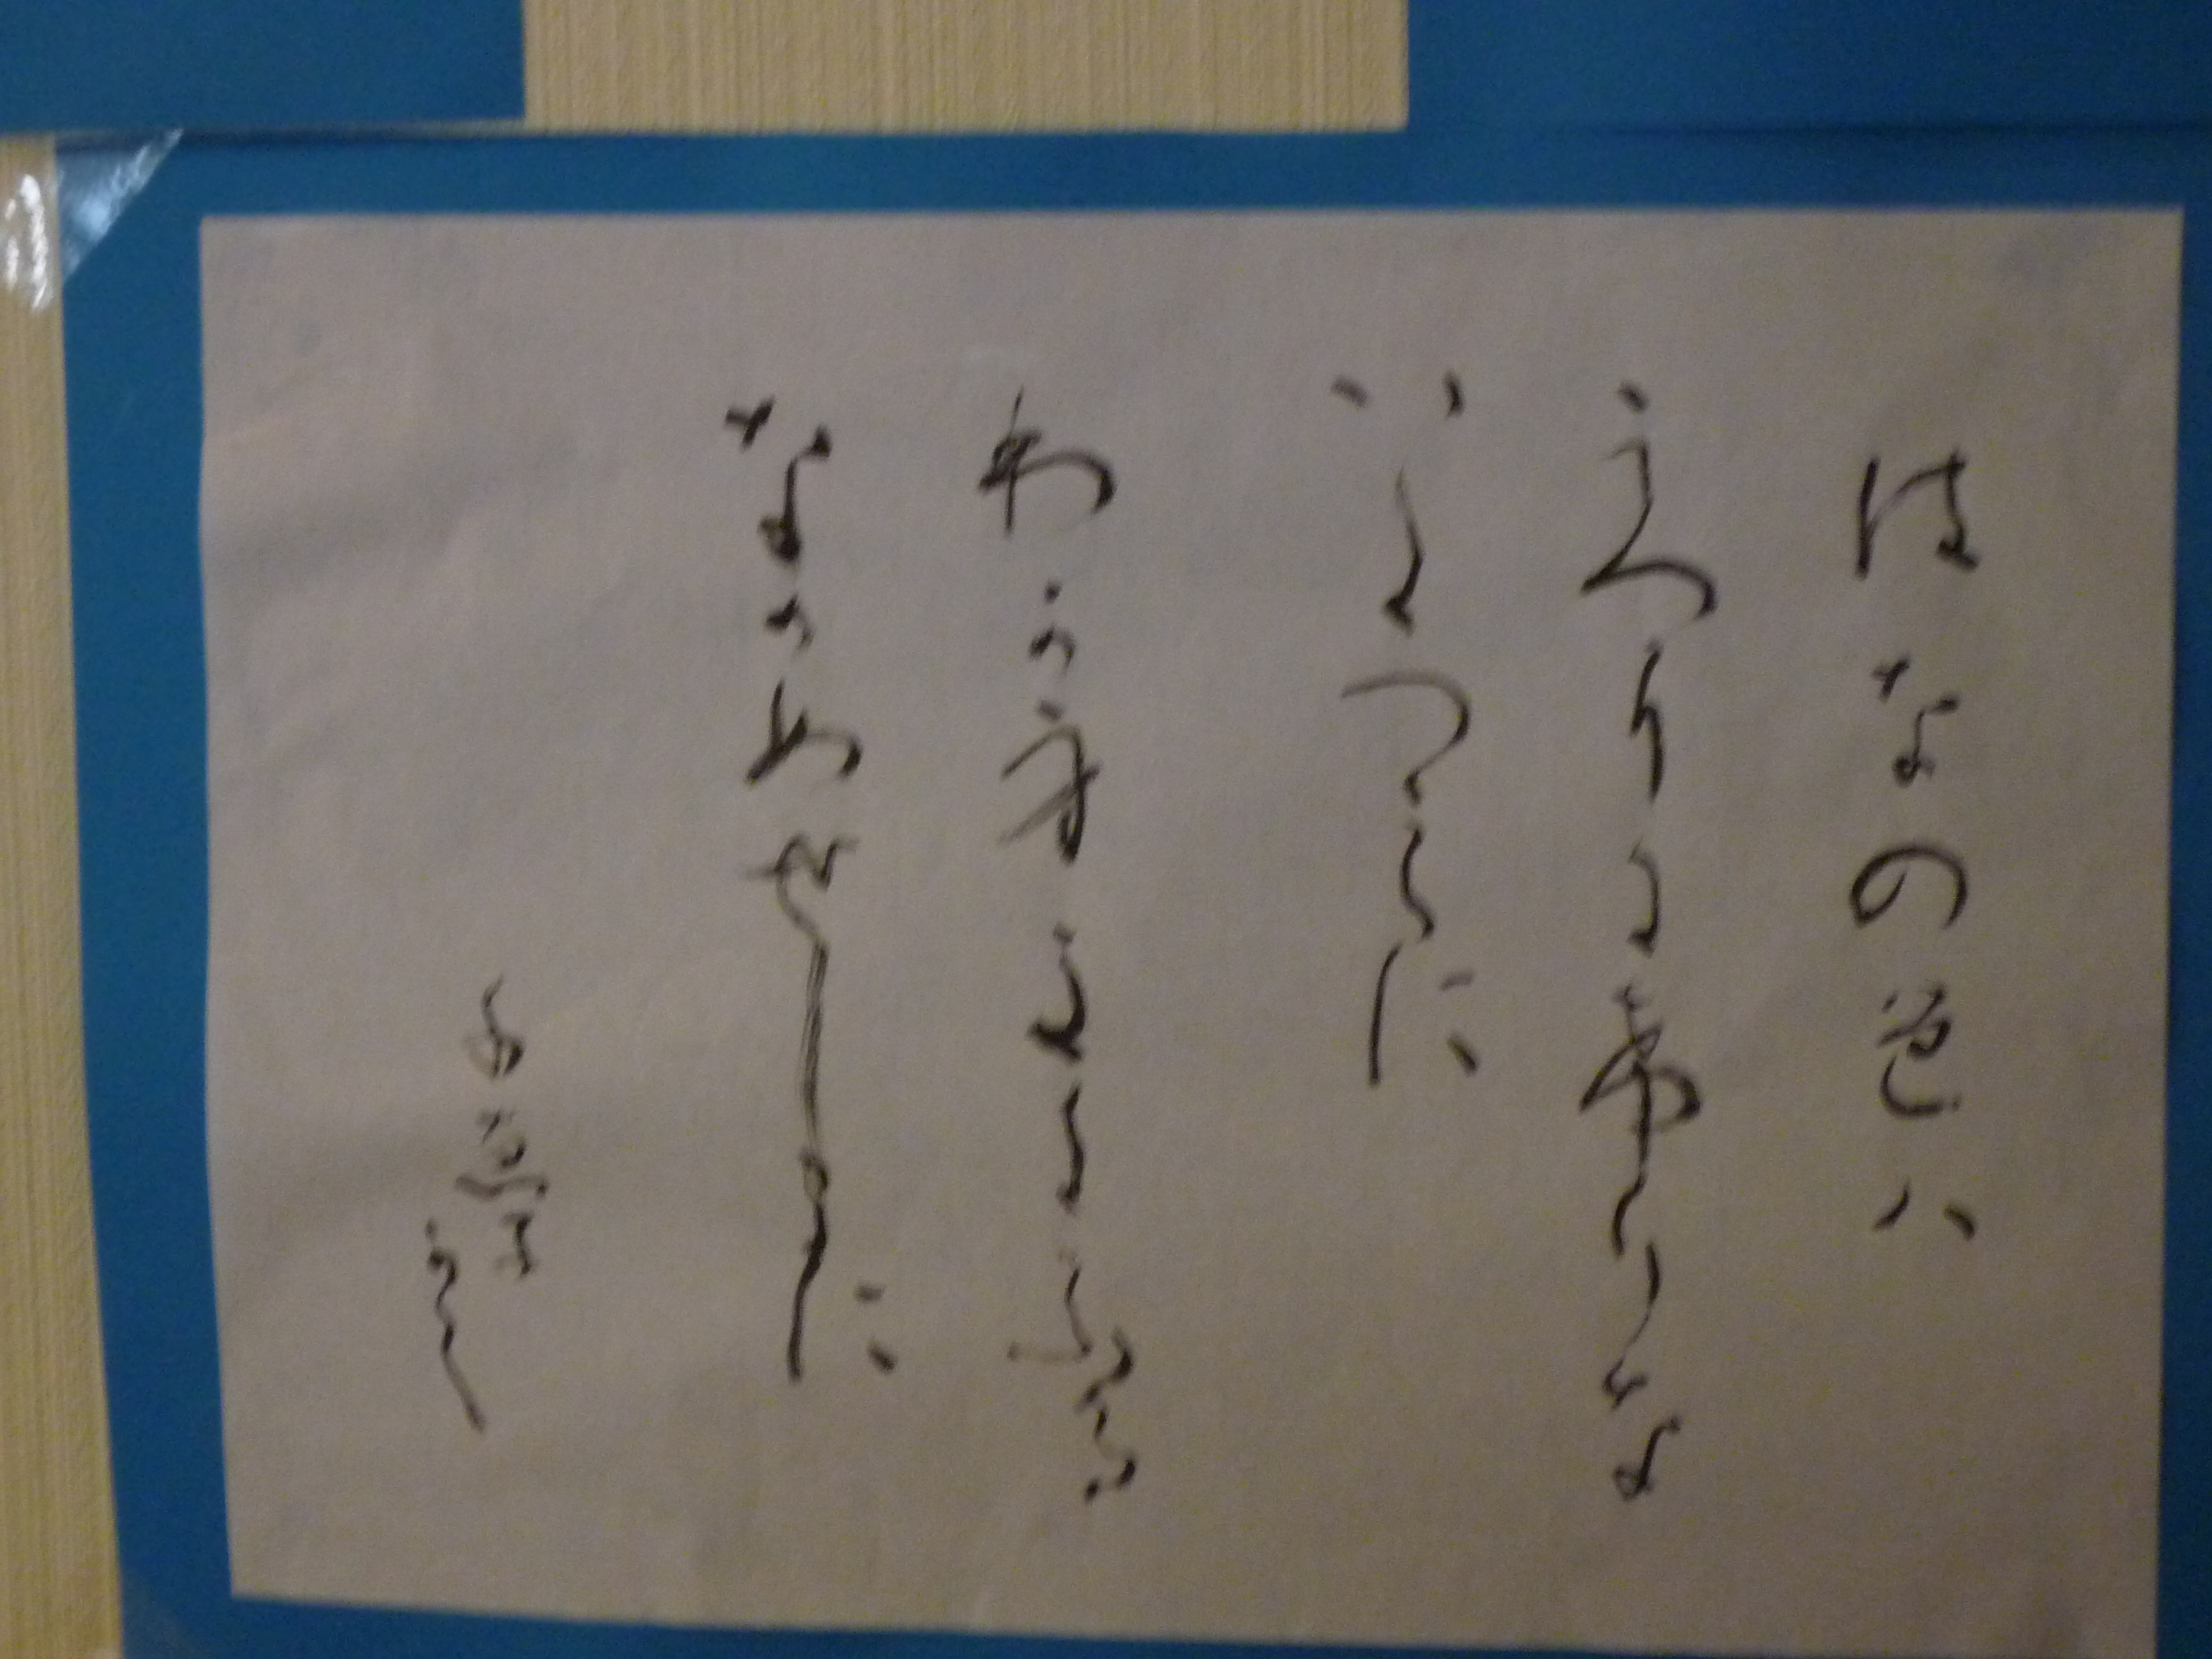 はなの色ハ
うつりにけりな
いたつらに
わか身よにふる
なかめせしまに